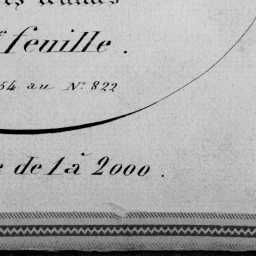 feuille.
54 au N° 822
e de 1 à 2000.